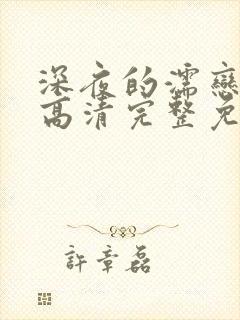 深夜的濡戀
高清完整免
許章磊